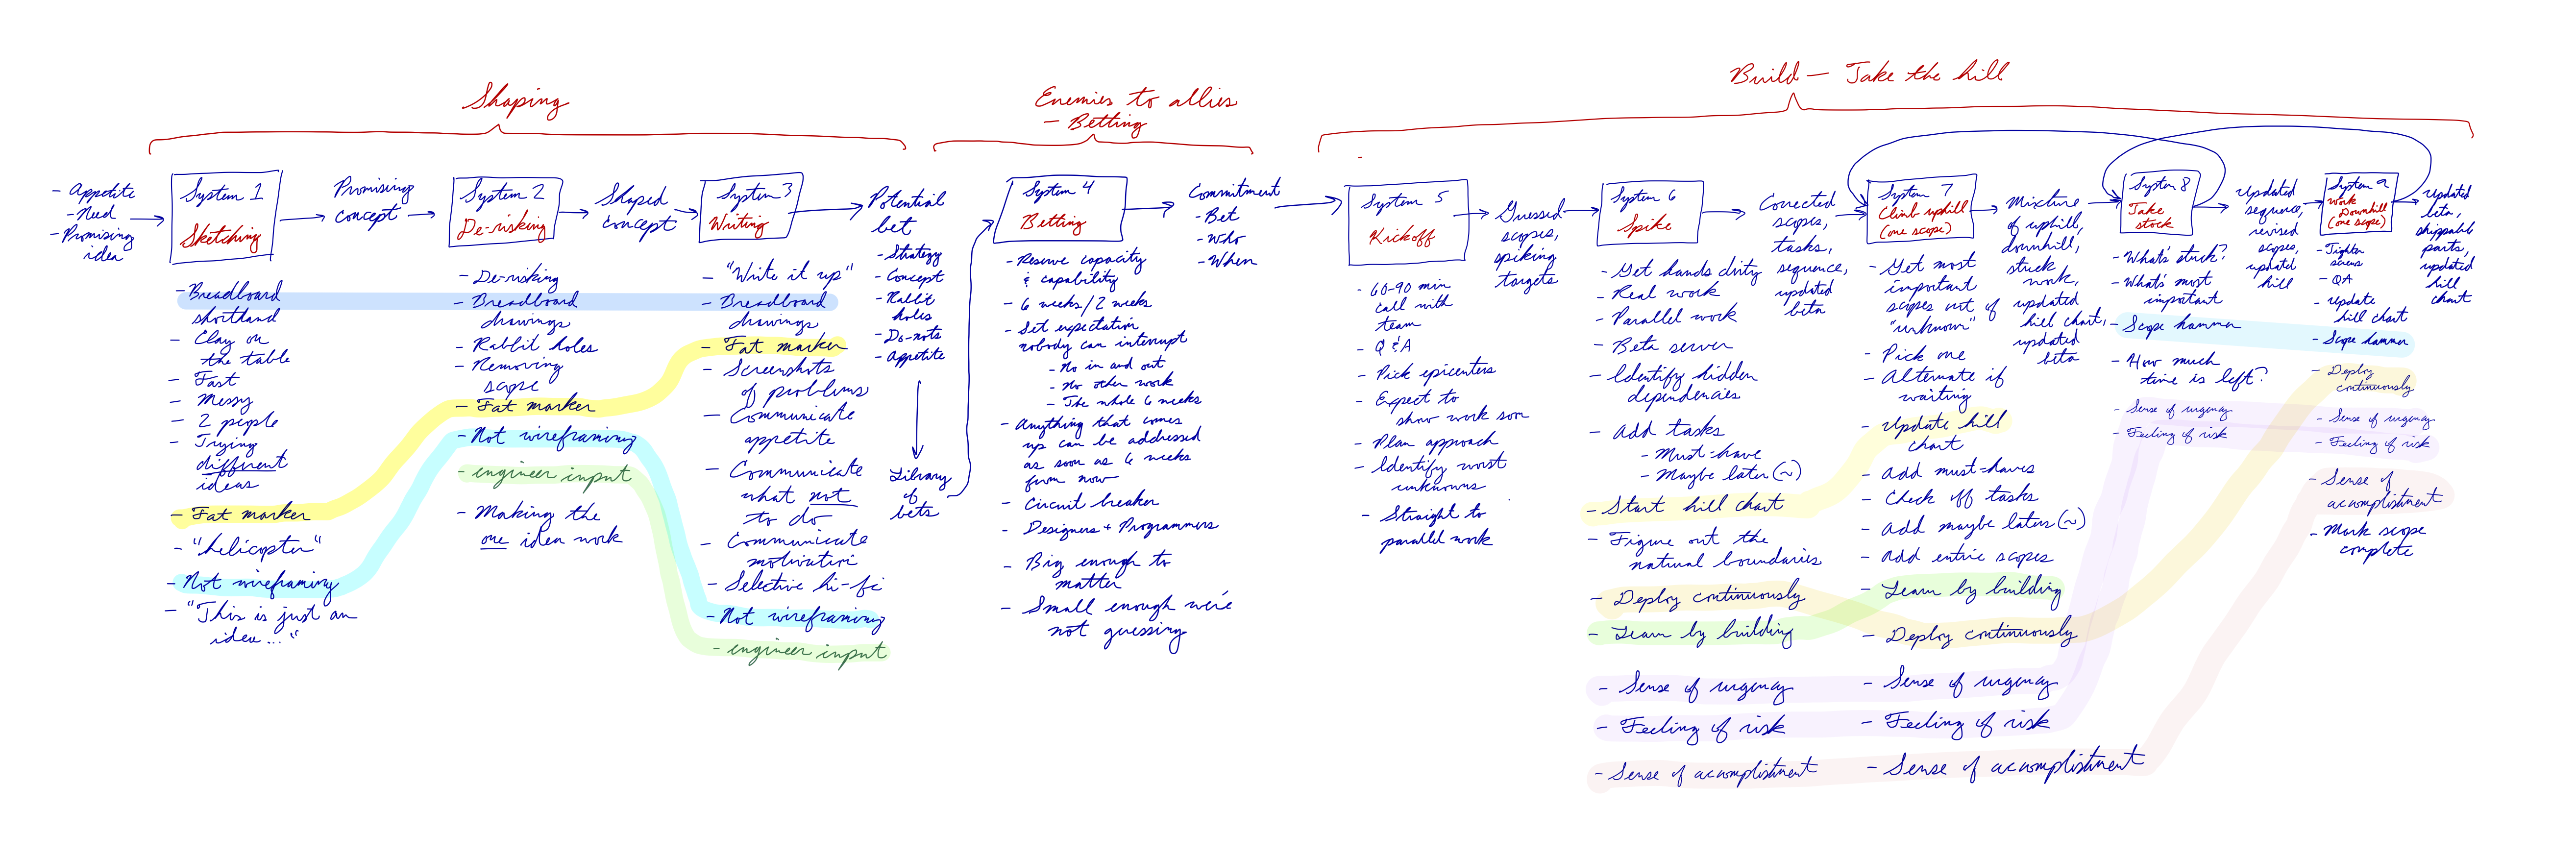 Shaping
Enemies to allies
- Betting
Build - Take the hill
- Appetite
- Need
- Promising
idea
System 1
Sketching
- Breadboard
shorthand
- Clay on
the table
- Fast
- Messy
- 2 people
- Trying
different
ideas
- Fat marker
- "helicopter"
- Not wireframing
- "This is just an
idea..."
Promising
concept
System 2
De-risking
- De-risking
- Breadboard
drawings
- Rabbit holes
- Removing
scope
- Fat marker
- Not wireframing
- engineer input
- Making the
one idea work
Shaped
concept
System 3
Writing
- "Write it up"
- Breadboard
drawings
- Fat marker
- Screenshots
of problems
- Communicate
appetite
- Communicate
what not
to do
- Communicate
motivation
- Selective hi-fi
- Not wireframing
- engineer input
Potential
bet
- Strategy
- Concept
- Rabbit
holes
- Do-nots
- Appetite
Library
of
bets
System 4
Betting
- Reserve capacity
& capability
- 6 weeks/2 weeks
- Set expectation
nobody can interrupt
- No in and out
- No other work
- The whole 6 weeks
- Anything that comes
up can be addressed
as soon as 6 weeks
from now
- Circuit breaker
- Designers + Programmers
- Big enough to
matter
- Small enough we're
not guessing
Commitment
- Bet
- Who
- When
System 5
Kickoff
- 60-90 min
call with
team
- Q & A
- Pick epicenters
- Expect to
show work soon
- Plan approach
- Identify worst
unknowns
- Straight to
parallel work
Guessed
scopes,
spiking
targets
System 6
Spike
- Get hands dirty
- Real work
- Parallel work
- Beta server
- Identify hidden
dependencies
- Add tasks
- Must-have
- Maybe later (~)
- Start hill chart
- Figure out the
natural boundaries
- Deploy continuously
- Learn by building
- Sense of urgency
- Feeling of risk
- Sense of accomplishment
Corrected
scopes,
tasks,
sequence,
updated
beta
System 7
Climb uphill
(one scope)
- Get most
important
scopes out of
"unknown"
- Pick one
- Alternate if
waiting
- Update hill
chart
- Add must-haves
- Check off tasks
- Add maybe laters (~)
- Add entire scopes
- Learn by building
- Deploy continuously
- Sense of urgency
- Feeling of risk
- Sense of accomplishment
Mixture
of uphill,
downhill,
stuck
work,
updated
hill chart,
updated
beta
System 8
Take
stock
- What's stuck?
- What's most
important
- Scope hammer
- How much
time is left?
- Sense of urgency
- Feeling of risk
Updated
sequence,
revised
scopes,
updated
hill
System 9
Work
Downhill
(one scope)
- Tighten
screws
- QA
- Update
hill chart
- Scope hammer
- Deploy
continuously
- Sense of urgency
- Feeling of risk
- Sense of
accomplishment
- Mark scope
complete
Updated
beta,
shippable
parts,
updated
hill
chart